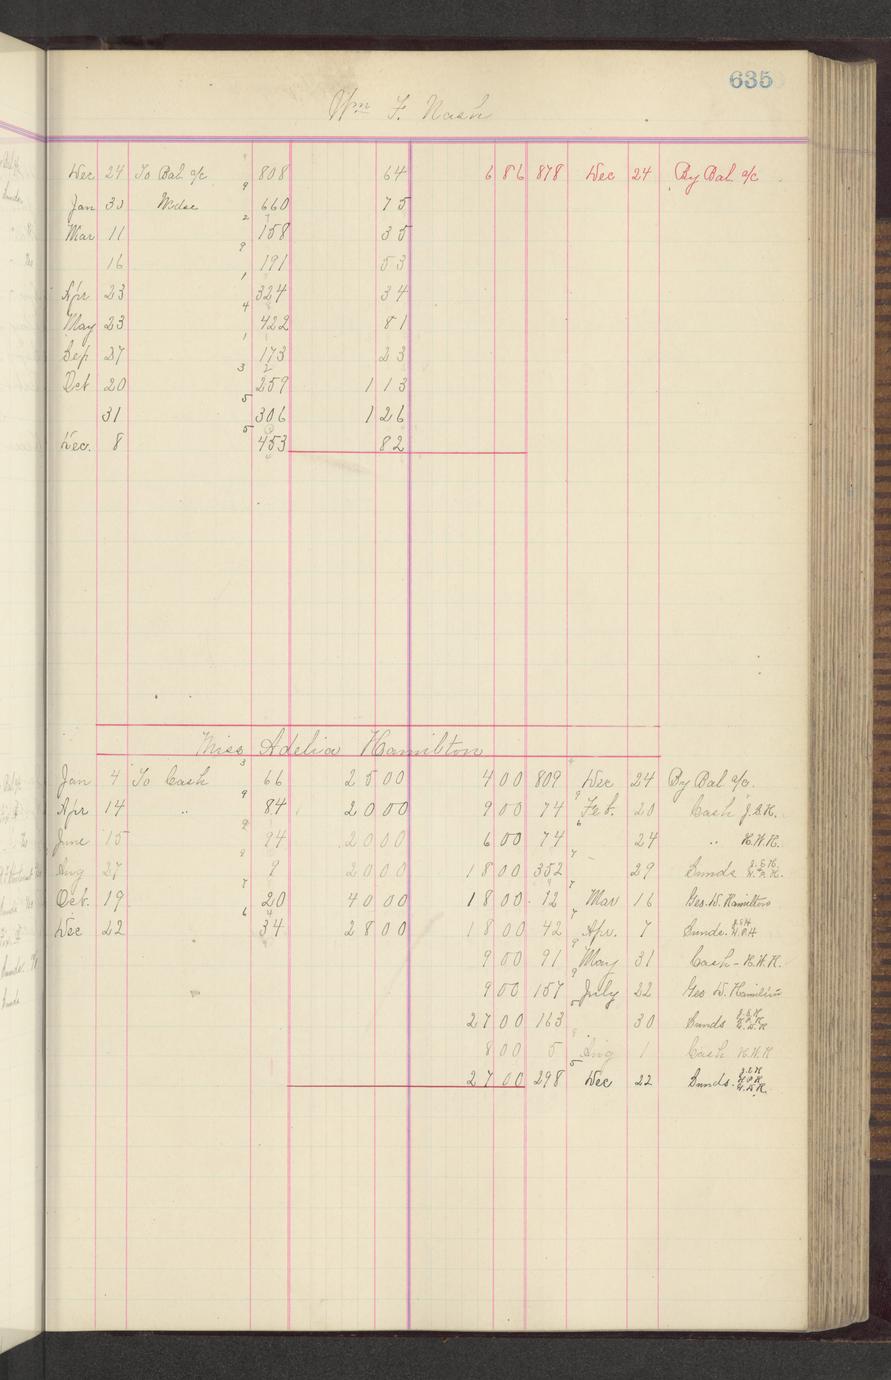 635
Wm F. Nash
Dec 24 To Bal a/c 808 64 6 86 878 Dec 24 By Bal a/c
Jan 30 Mdse 9 660 75
Mar 11 2 158 35
16 9 191 53
Apr 23 1 324 34
May 23 4 422 81
Sep 27 1 173 23
Oct 20 3 259 1 13
31 5 306 1 26
Dec. 8 5 453 82
Miss Adelia Hamilton
Jan 4 To Cash 3 66 25 00 4 00 809 Dec 24 By Bal a/c.
Apr 14 " 9 84 20 00 9 00 74 9 Feb. 20 Cash J.E.H.
June 15 9 94 20 00 6 00 74 6 24 " H.W.H.
Aug 27 9 9 20 00 18 00 352 7 29 Sunds
Oct. 19 7 20 40 00 18 00 12 7 Mar 16 Geo. W. Hamilton
Dec 22 6 34 28 00 18 00 42 7 Apr. 7 Sunds.
9 00 91 9 May 31 Cash - H.W.H.
9 00 157 9 July 22 Geo W. Hamilton
27 00 163 30 Sunds
8 00 5 Aug 1 Cash H.W.H
27 00 298 5 Dec 22 Sunds.